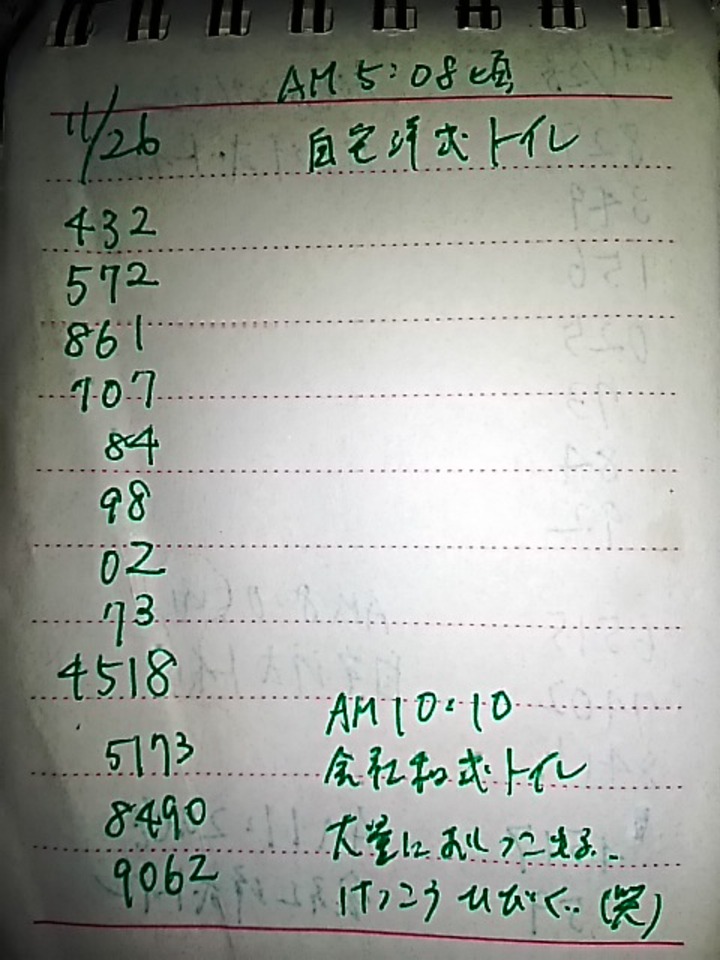 AM 5:08頃
11/26
自宅洋式トイレ
432
572
861
707
84
98
02
73
4518
AM 10:10
5173
会社和式トイレ
8490
大量におしっこ出る..
9062
けっこうひびく..(笑)